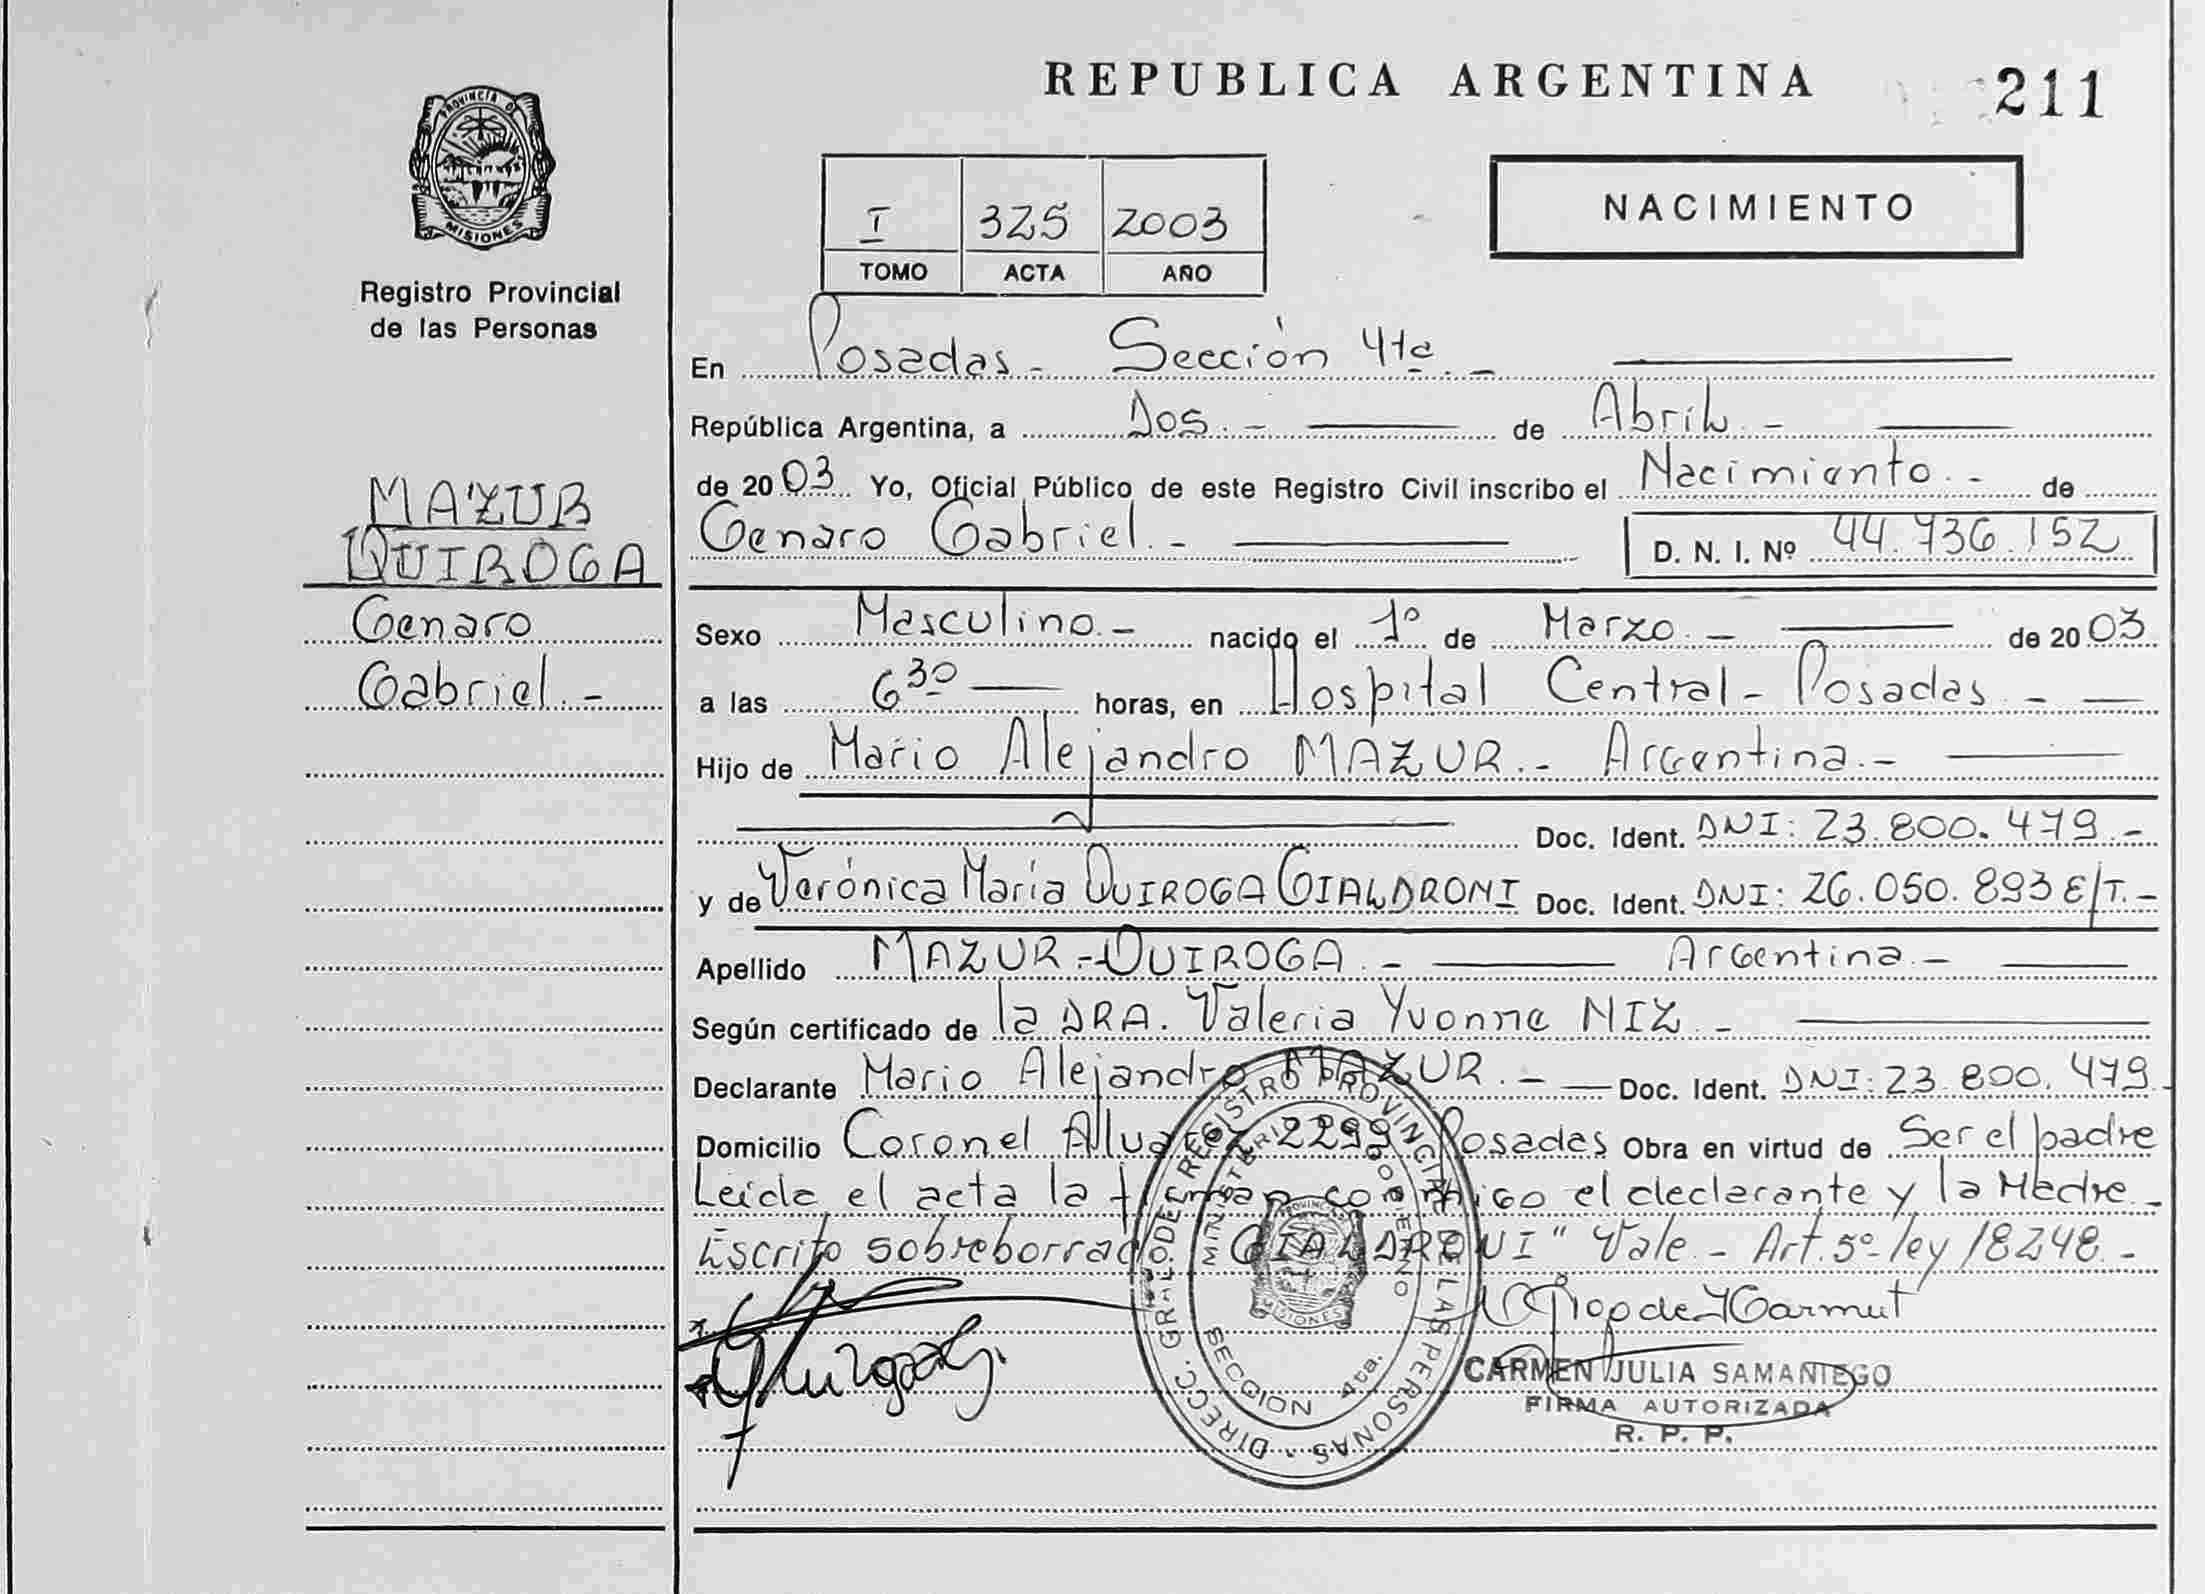 REPUBLICA ARGENTINA
211
PROVINCIA D
MISIONES
Registro Provincial
de las Personas
I 325 2003
TOMO ACTA AÑO
NACIMIENTO
MAZUR
QUIROGA
Genaro
Gabriel.-
En Posadas - Sección 4ta.-
República Argentina, a Dos.- de Abril.-
de 2003 Yo, Oficial Público de este Registro Civil inscribo el Nacimiento.- de
Genaro Gabriel.- D. N. I. Nº 44.736.152
Sexo Masculino.- nacido el 1º de Marzo.- de 2003
a las 6 30 horas, en Hospital Central - Posadas.-
Hijo de Mario Alejandro MAZUR.- Argentina.-
Doc. Ident. DNI: 23.800.479.-
y de Verónica María QUIROGA GIALDRONI Doc. Ident. DNI: 26.050.893 E/T.-
Apellido MAZUR - QUIROGA.- Argentina.-
Según certificado de la DRA. Valeria Yvonne NIZ.-
Declarante Mario Alejandro MAZUR.- Doc. Ident. DNI: 23.800.479.
Domicilio Coronel Alvarez 2299 Posadas Obra en virtud de Ser el padre
Leída el acta la firman conmigo el declarante y la Madre.-
Escrito sobreborrado "GIALDRONI" Vale.- Art. 5º ley 18248.-
DIRECC. GRAL. DEL REGISTRO PROVINCIAL DE LAS PERSONAS
MINISTERIO GOBIERNO
MISIONES
SECCION 4ta.
CARMEN JULIA SAMANIEGO
FIRMA AUTORIZADA
R. P. P.